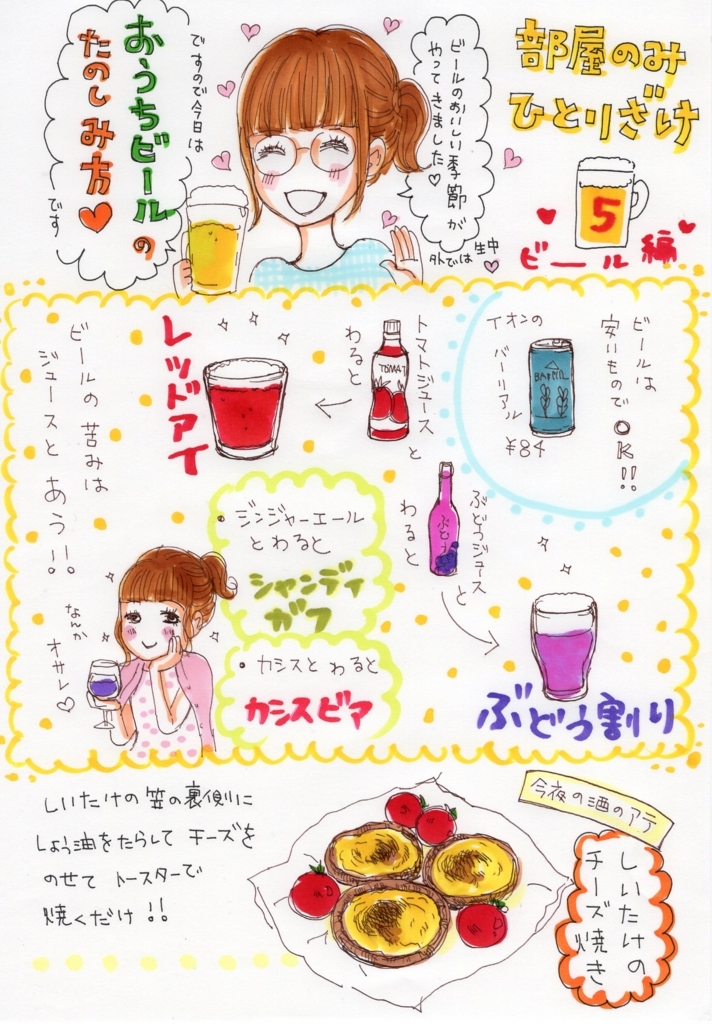 部屋のみ
ひとりざけ
5
ビール編
ビールのおいしい季節が
やってきました♡
外では
生中
♡
ですので今日は
おうちビールの
たのしみ方♥
です
ビールは
安いもので
OK!!
イオンの
バーリアル
¥84
トマトジュースと
わると
TOMAT
レッドアイ
ぶどうジュースと
わると
ぶどう割り
ビールの苦みは
ジュースと あう!!
・ジンジャーエール
とわると
シャンディ
ガフ
・カシスと わると
カシスビア
なんか
オサレ♡
今夜の酒のアテ
しいたけの
チーズ焼き
しいたけの笠の裏側に
しょう油をたらして チーズを
のせて トースターで
焼くだけ!!